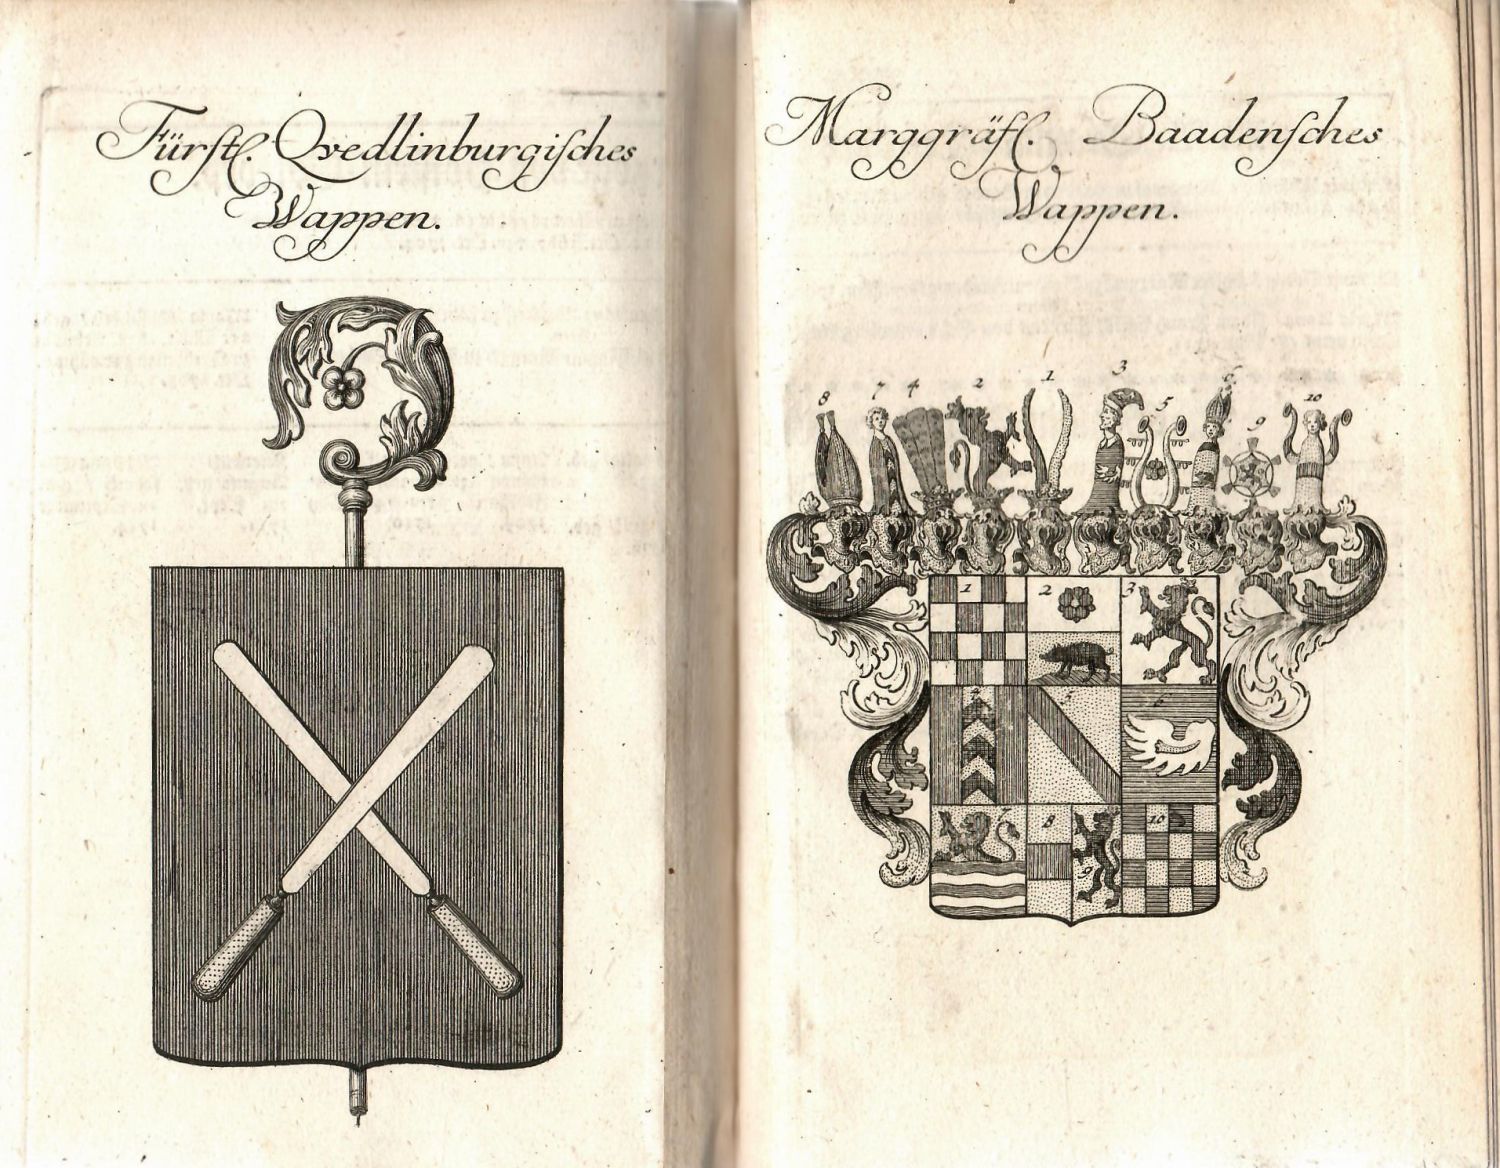 Fürstl. Qvedlinburgisches
Wappen.
Marggräfl. Baadensches
Wappen.
8 7 4 2 1 3 5 6 9 10
1 2 3
4 5 6
7 8 9 10